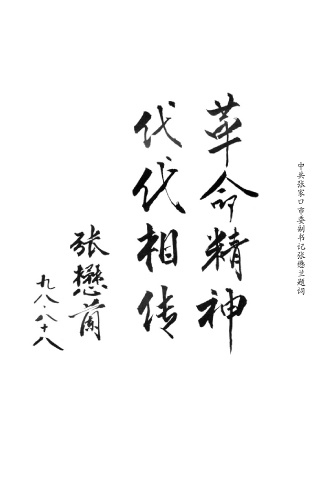 中共张家口市委副书记张懋兰题词
革命精神
代代相传
张懋兰
九八·八十八